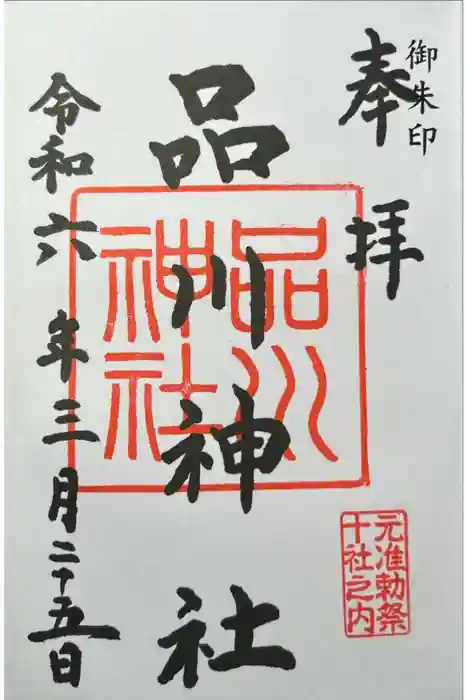 御朱印
奉拝
品川神社
品川
神社
元准勅祭
十社之内
令和六年三月二十五日